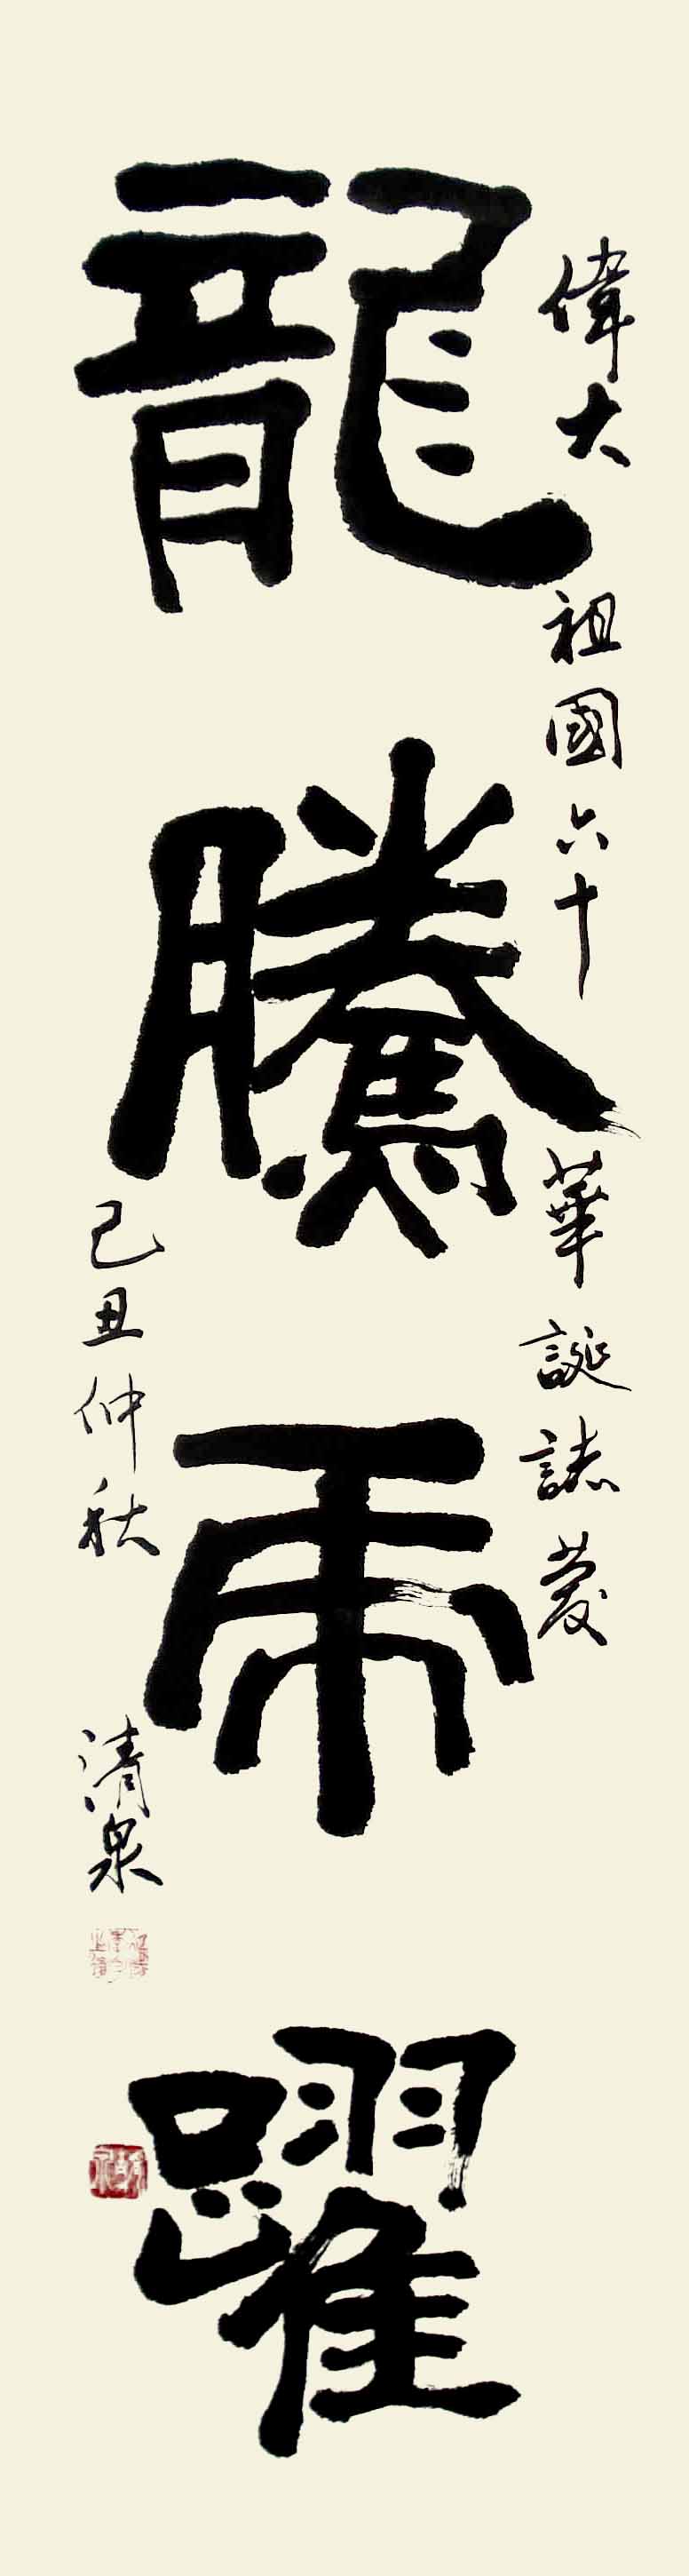 偉大祖國六十華誕誌慶
龍騰虎躍
己丑仲秋清泉